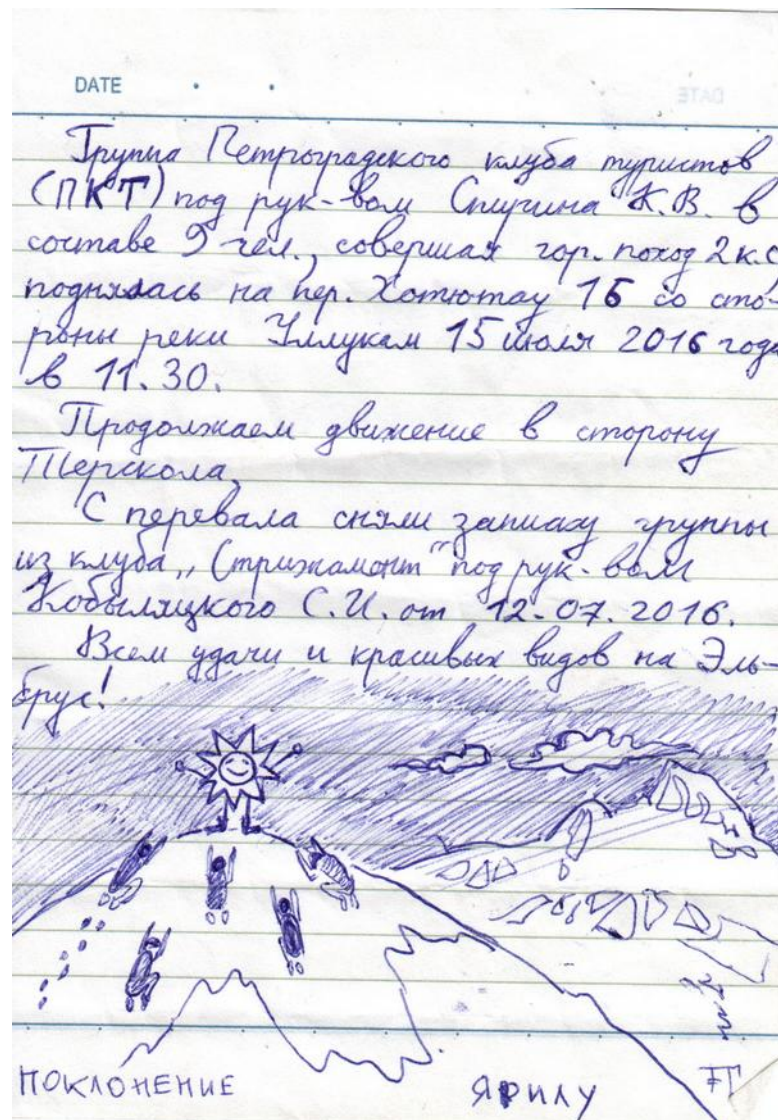 DATE
Группа Петроградского клуба туристов
(ПКТ) под рук-вом Спирина К.В. в
составе 9 чел., совершая гор. поход 2 к.с
поднялась на пер. Хотютау 1Б со сто-
роны реки Уллукам 15 июля 2016 года
в 11.30.
Продолжаем движение в сторону
Терскола.
С перевала сняли записку группы
из клуба „Стрижамент" под рук-вом
Кобыляцкого С.И. от 12.07.2016.
Всем удачи и красивых видов на Эль-
брус!
ПОКЛОНЕНИЕ ЯРИЛУ